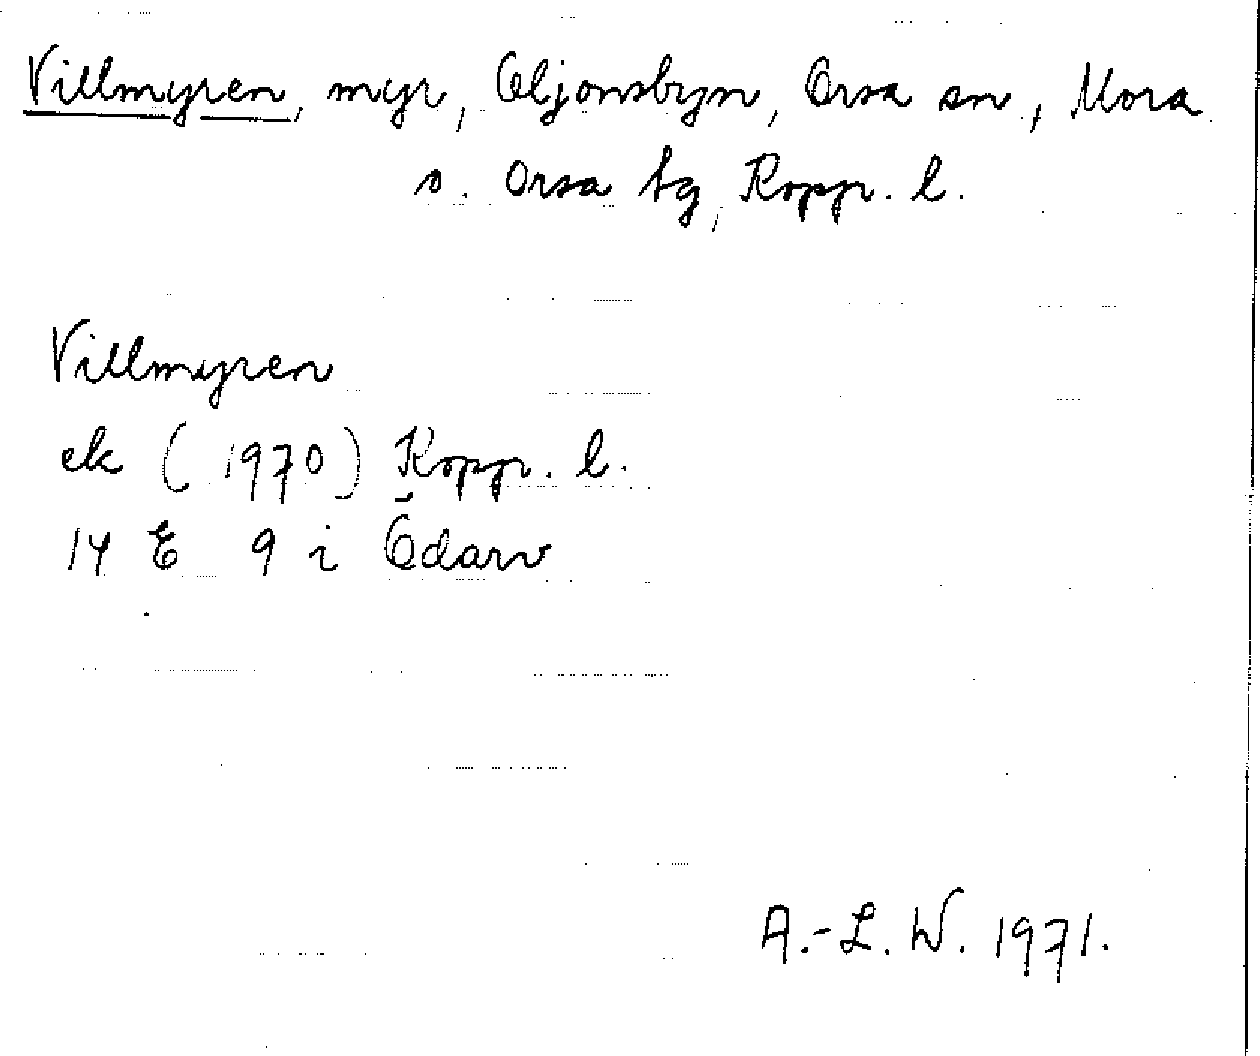 Villmyren, myr, Oljonsbyn, Orsa sn, Mora
o. Orsa tg, Kopp. l.
Villmyren
ek (1970) Kopp. l.
14 E 9 i Ödarv
A.-L. W. 1971.